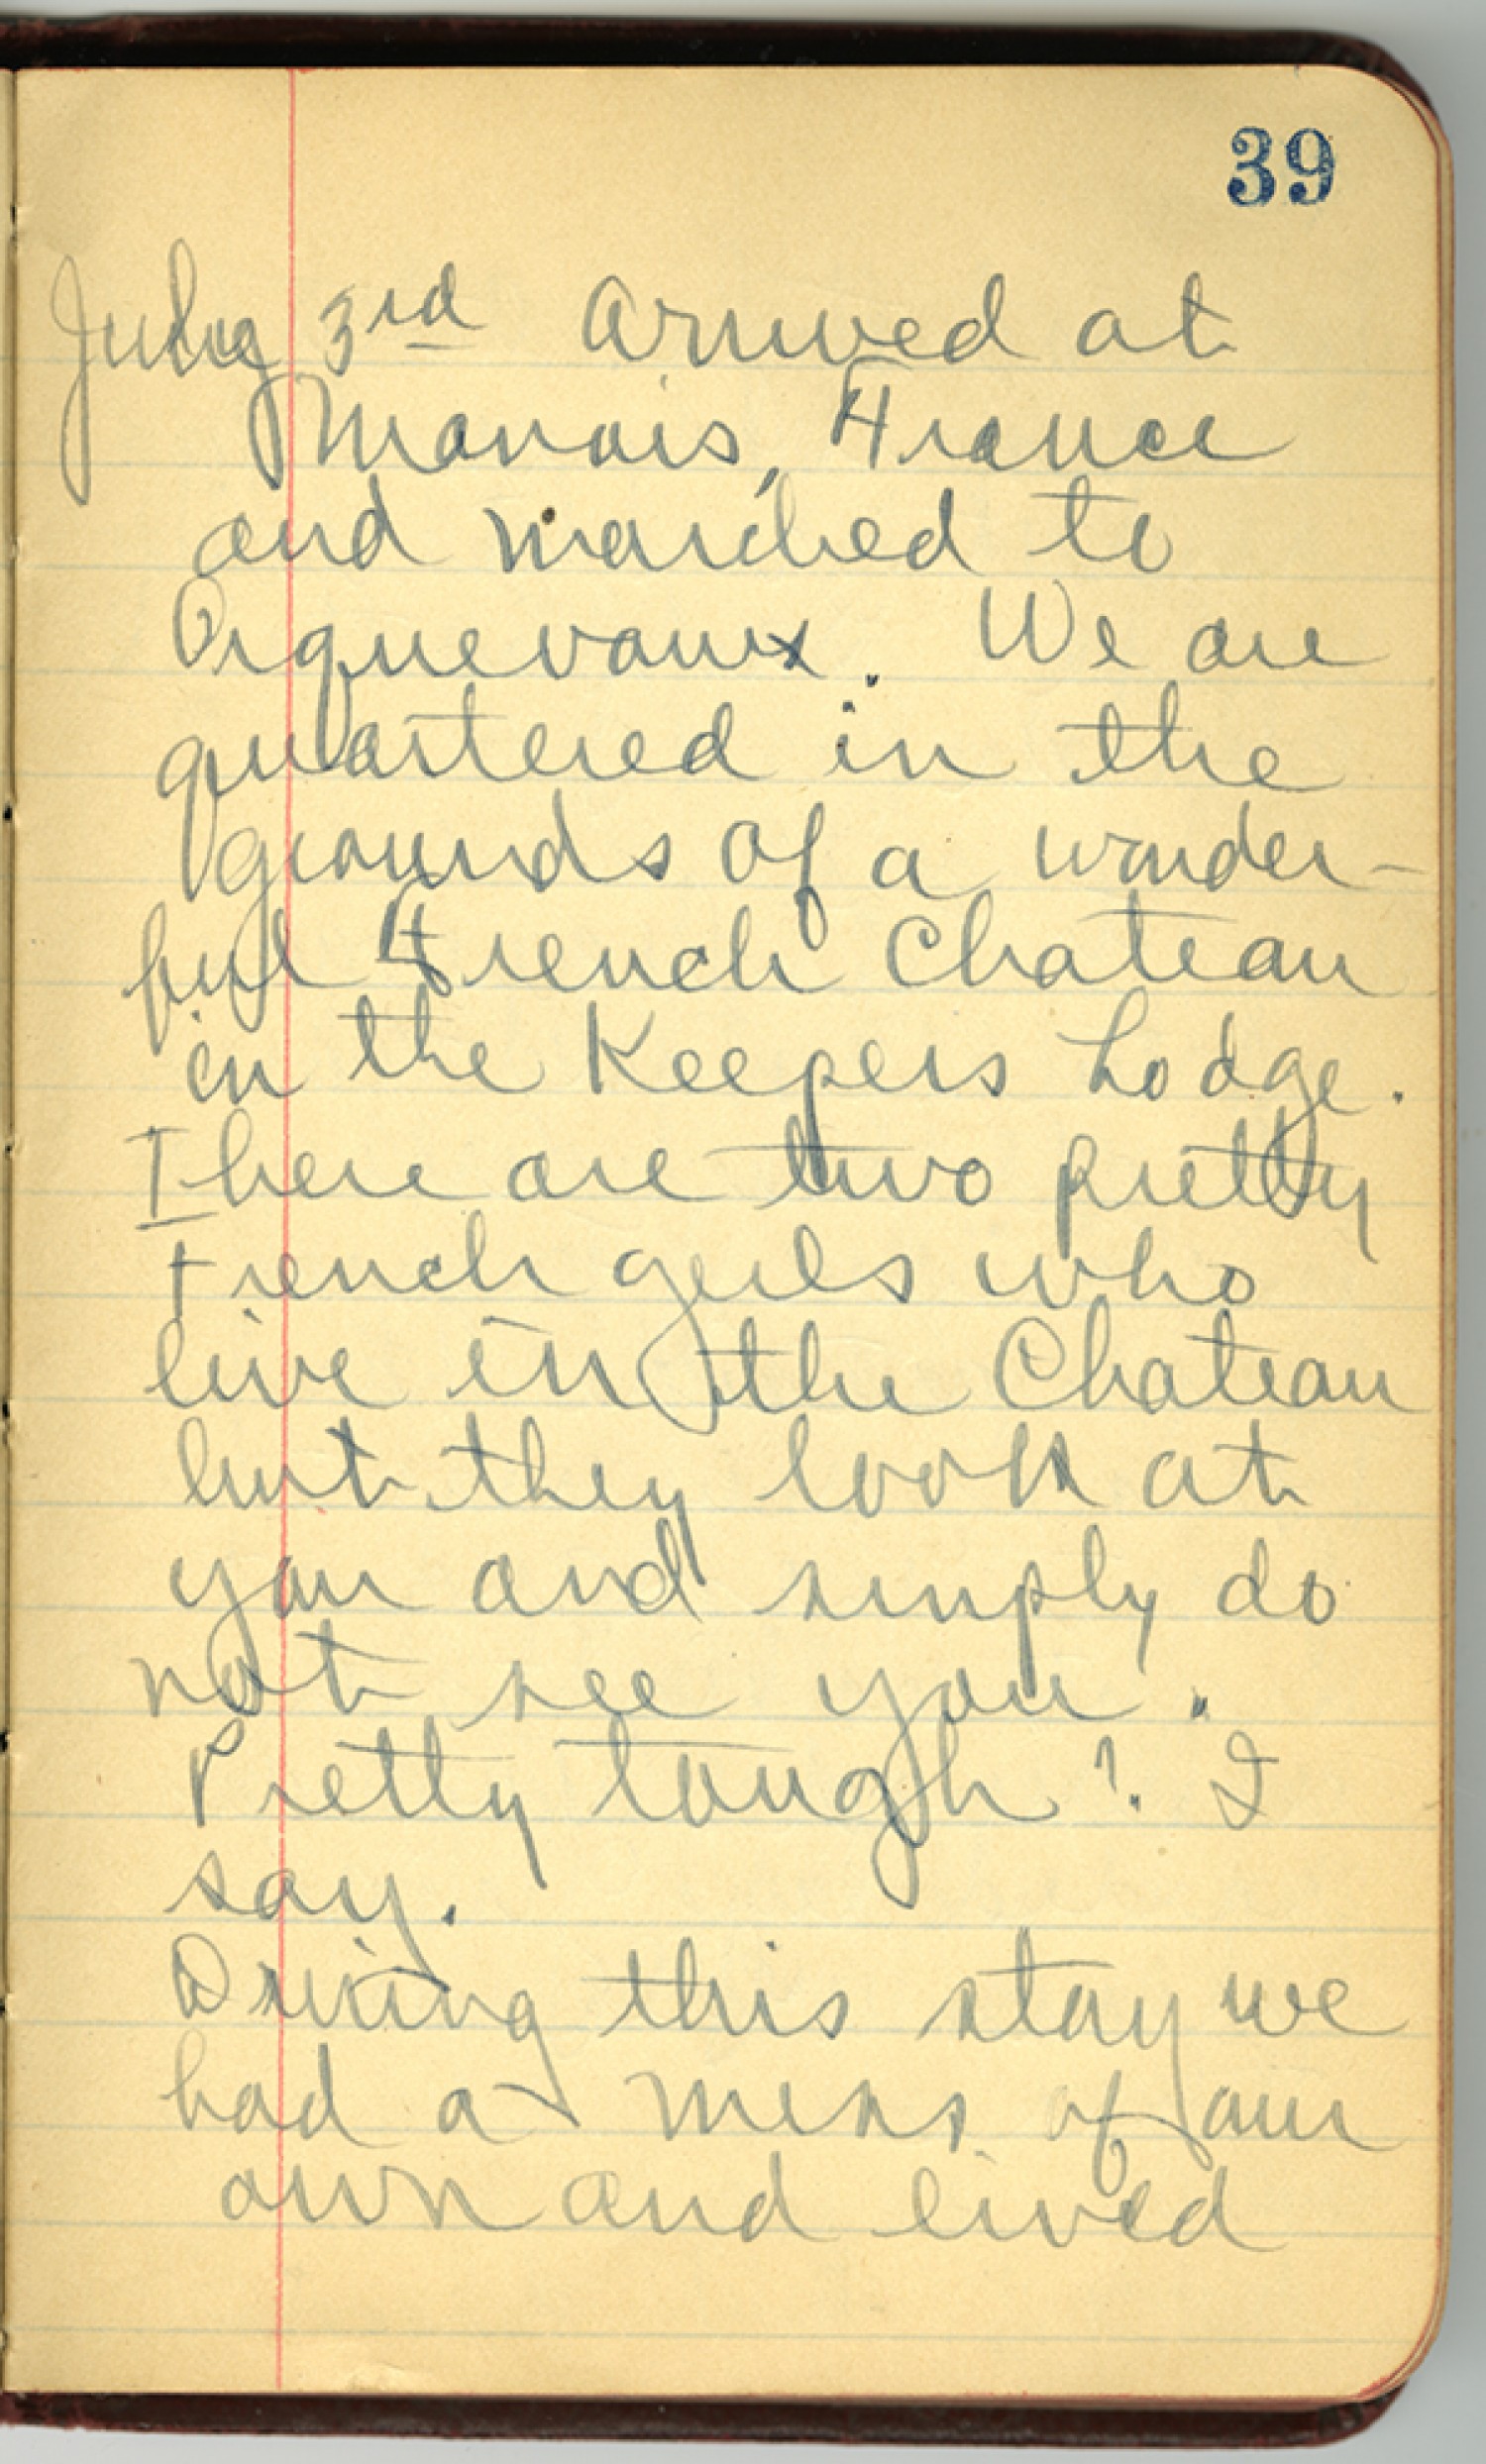 39
July 3rd Arrived at
Manois, France
and marched to
Orquevaux. We are
quartered in the
grounds of a wonder-
ful French Chateau
in the Keepers Lodge.
There are two pretty
French girls who
live in the Chateau
but they look at
you and simply do
not see you.
Pretty tough? I
say.
During this stay we
had a mess of our
own and lived